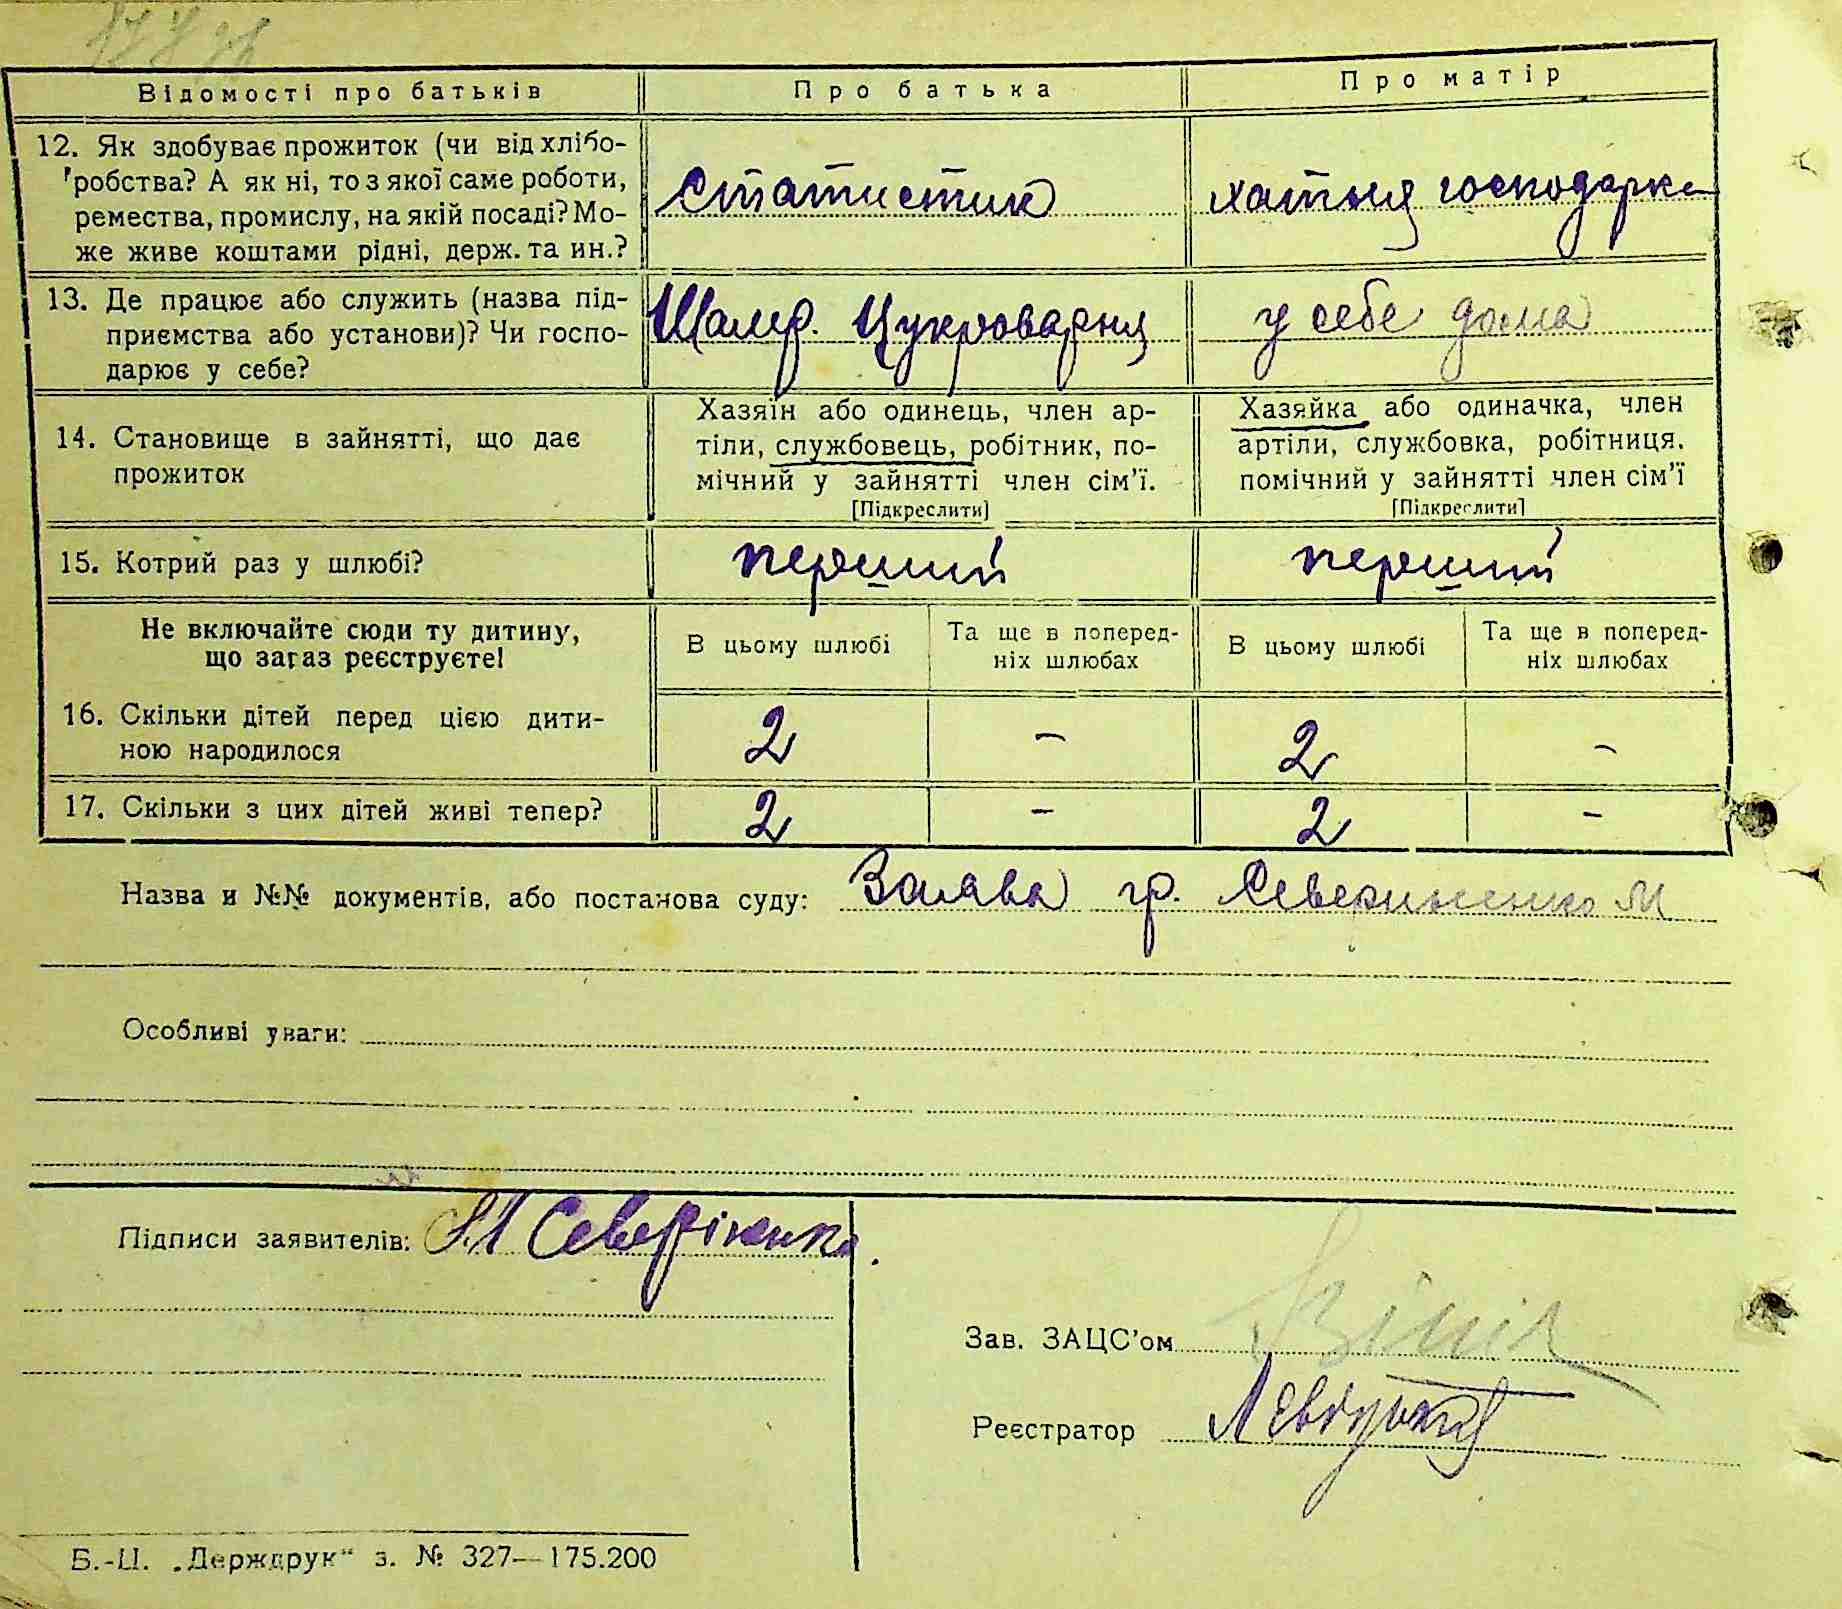 Відомості про батьків Про батька Про матір
12. Як здобуває прожиток (чи від хлібо-
робства? А як ні, то з якої саме роботи,
ремества, промислу, на якій посаді? Мо-
же живе коштами рідні, держ. та ин.?
статистик
хатня господарка
13. Де працює або служить (назва під-
приємства або установи)? Чи госпо-
дарює у себе?
Цукроварня
у себе дома
14. Становище в зайнятті, що дає
прожиток
Хазяїн або одинець, член ар-
тіли, службовець, робітник, по-
мічний у зайнятті член сім'ї.
[Підкреслити]
Хазяйка або одиначка, член
артіли, службовка, робітниця.
помічний у зайнятті член сім'ї
[Підкреслити]
15. Котрий раз у шлюбі?
перший
перший
Не включайте сюди ту дитину,
що зараз реєструєте!
В цьому шлюбі
Та ще в поперед-
ніх шлюбах
В цьому шлюбі
Та ще в поперед-
ніх шлюбах
16. Скільки дітей перед цією дити-
ною народилося
2 - 2 -
17. Скільки з цих дітей живі тепер? 2 - 2 -
Назва и №№ документів, або постанова суду: Заява гр. Севериненко М
Особливі уваги:
Підписи заявителів: Северіненко
Зав. ЗАЦС'ом
Реєстратор
Б.-Ц. „Держдрук" з. № 327—175.200